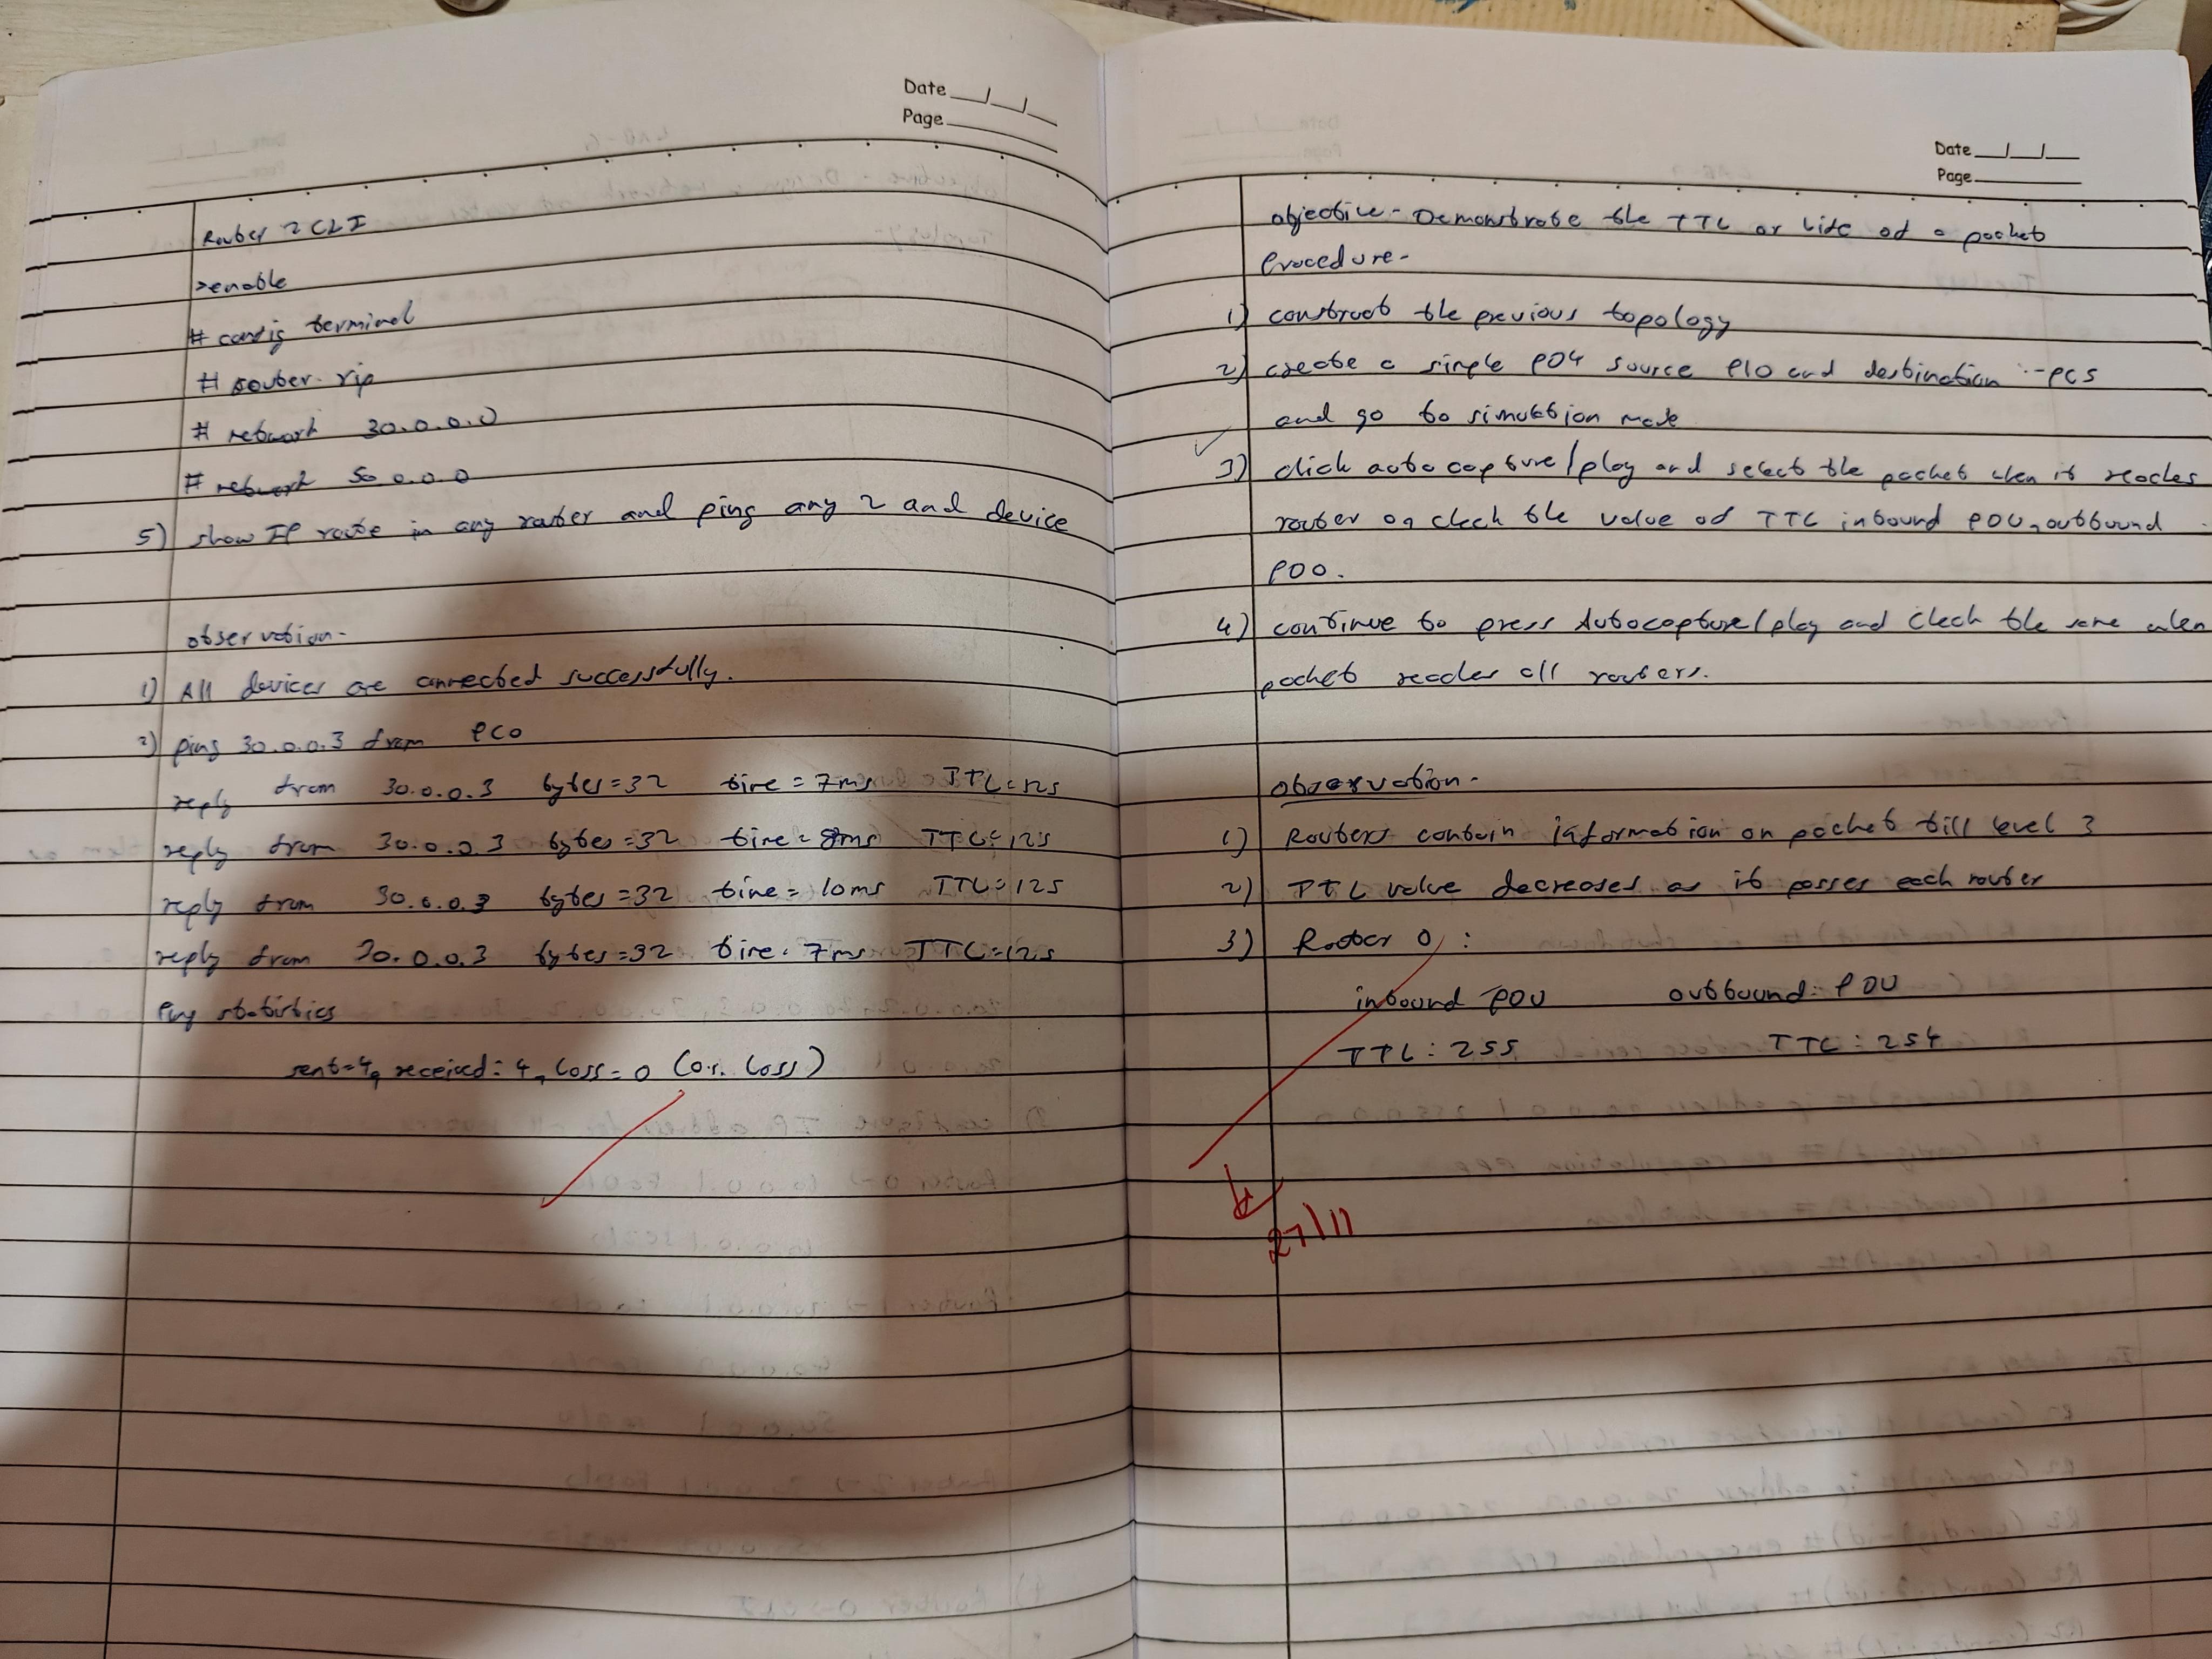 Date __/__/__
Page ______
Router 2 CLI
>enable
# config terminal
# router rip
# network 30.0.0.0
# network 50.0.0.0
5) show IP route in any router and ping any 2 end device
observation-
1) All devices are connected successfully.
2) ping 30.0.0.3 from PC0
reply from 30.0.0.3 bytes=32 time=7ms TTL=125
reply from 30.0.0.3 bytes=32 time=8ms TTL=125
reply from 30.0.0.3 bytes=32 time=10ms TTL=125
reply from 30.0.0.3 bytes=32 time=7ms TTL=125
Ping statistics
sent=4, received=4, Loss=0 (0% Loss)
Date __/__/__
Page ______
objective- Demonstrate the TTL or Life of a packet
Procedure-
1) construct the previous topology
2) create a simple PDU source and destination :-PC5
and go to simulation mode
3) click auto capture/play and select the packet when it reaches
router check the value of TTL inbound PDU, outbound
PDU.
4) continue to press Autocapture/play and check the same when
packet reaches all routers.
observation-
1) Routers contain information on packet till level 3
2) TTL value decreases as it passes each router
3) Router 0 :
inbound PDU outbound: PDU
TTL : 255 TTL : 254
27/11